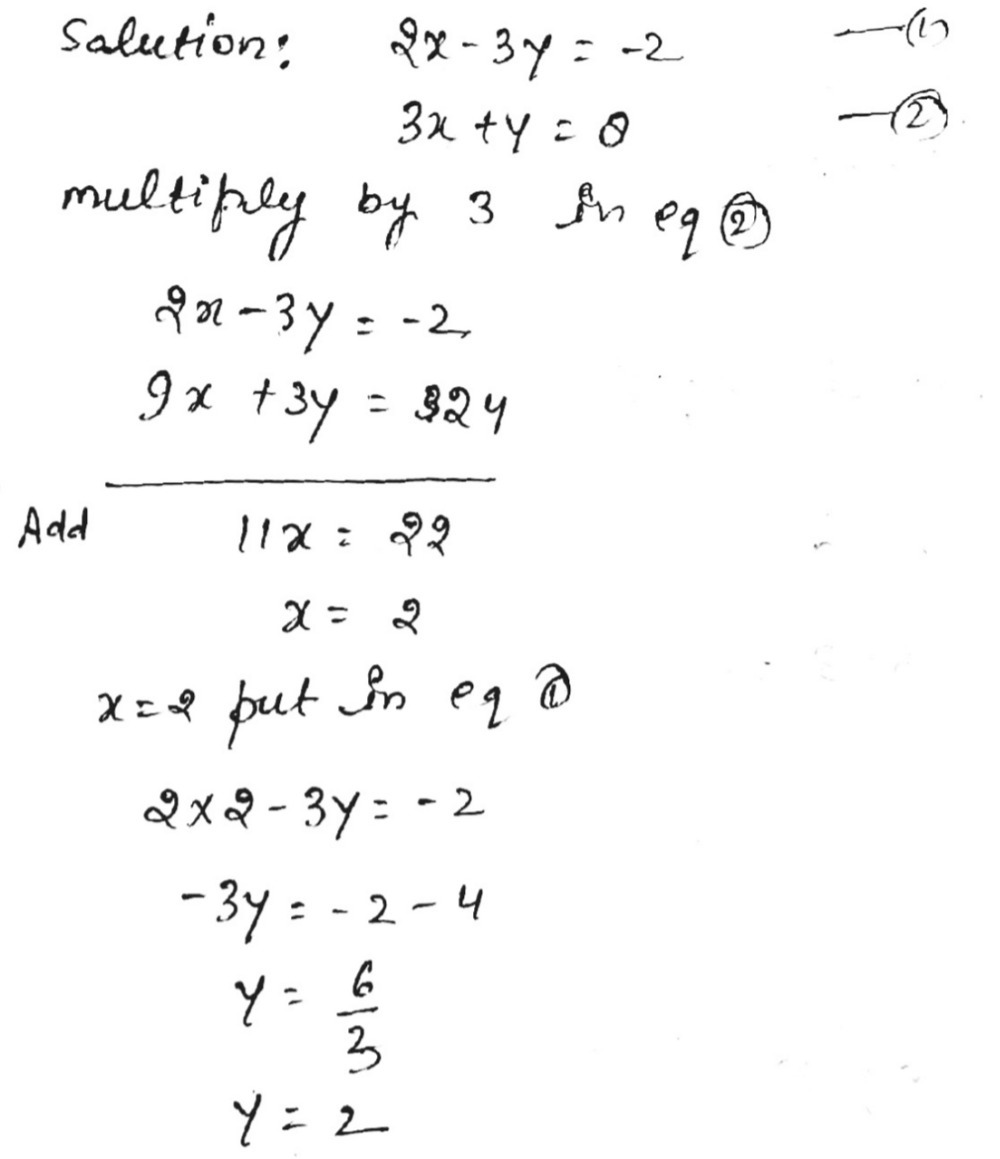 Salution: 2x - 3y = -2 —(1)
3x + y = 8 —(2)
multiply by 3 in eq (2)
2x - 3y = -2
9x + 3y = 24
Add 11x = 22
x = 2
x = 2 put in eq (1)
2 x 2 - 3y = -2
-3y = -2 - 4
y = 6/3
y = 2